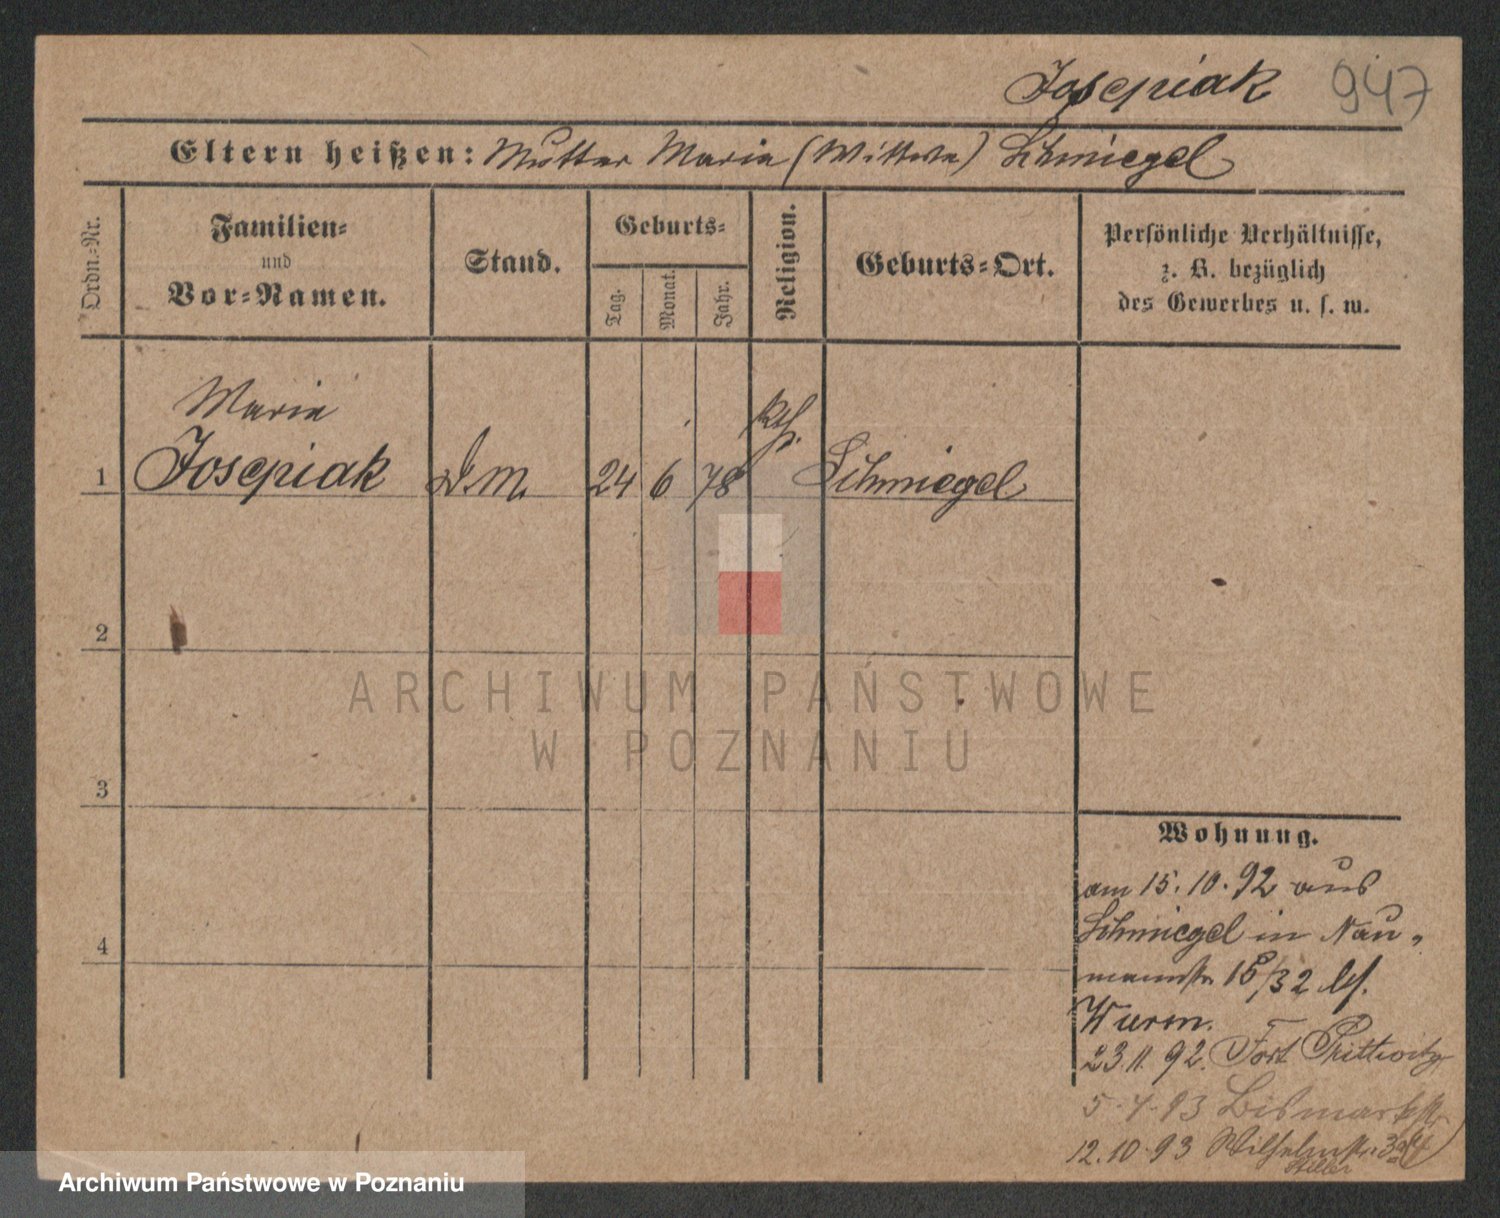 Josepiak 947
Eltern heißen: Mutter Maria (Wittwe) Schmiegel
Ordn.-Nr.
Familien-
und
Vor-Namen.
Stand.
Geburts-
Tag.
Monat.
Jahr.
Religion.
Geburts-Ort.
Persönliche Verhältnisse,
z. B. bezüglich
des Gewerbes u. s. w.
Maria
1 Josepiak D.M. 24 6 78 kth. Schmiegel
2
ARCHIWUM PAŃSTWOWE
W POZNANIU
3
4
Wohnung.
am 15.10.92 aus
Schmiegel in Nau-
mannstr. /32 bf.
Wurm.
23.11.92. Fort Prittwitz
5.4.93 Bismarckstr
12.10.93 Wilhelmstr.
Stiller
Archiwum Państwowe w Poznaniu